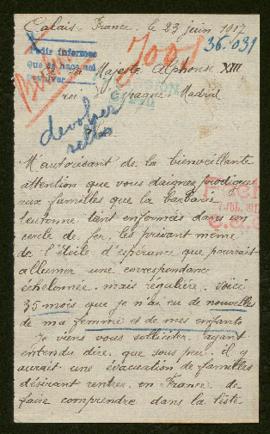 Calais. France. le 23 juin 1917
7001
36.031
Pedir informes
Majesté Alphonse XIII
roi d'Espagne Madrid
devolver
sellos
M'autorisant de la bienveillante
attention que vous daignez prodiguer
aux familles que la barbarie
teutonne tant enfermées dans un
cercle de fer, les privant même
de l'étoile d'espérance que pourrait
allumer une correspondance
échelonnée mais régulière, voici
35 mois que je n'ai eu de nouvelles
de ma femme et de mes enfants
Je viens vous solliciter, ayant
entendu dire, que sous peu, il y
aurait une évacuation de familles
désirant rentrer en France de
faire comprendre dans la liste